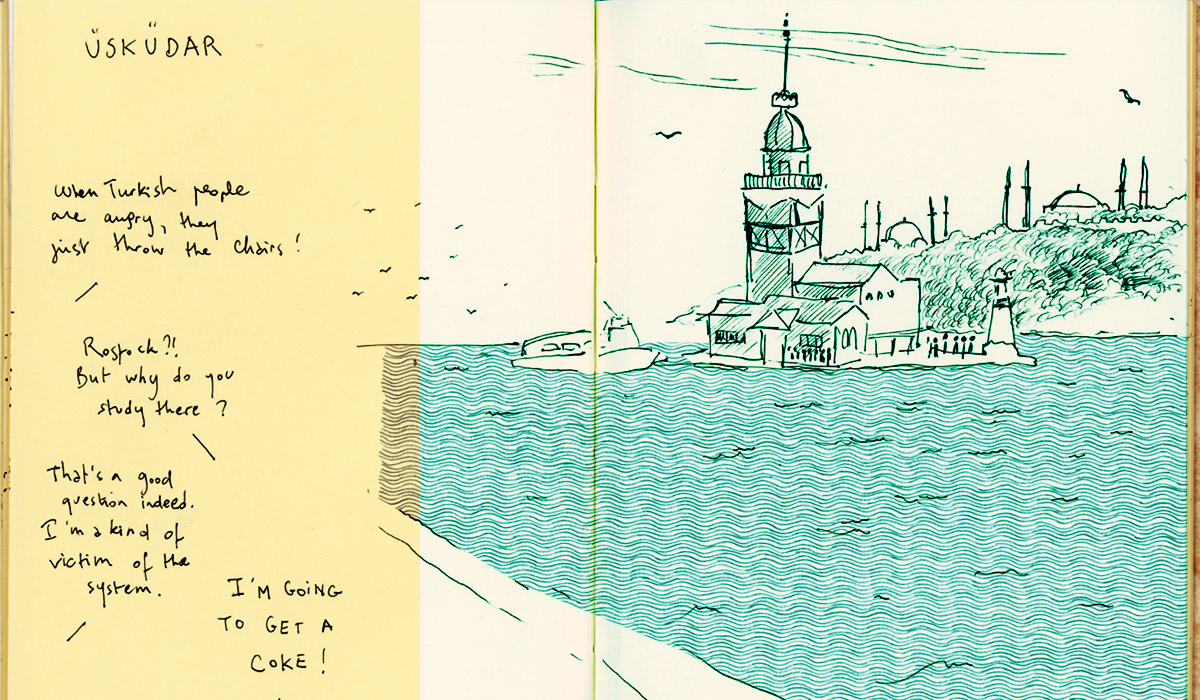 ÜSKÜDAR
When Turkish people
are angry, they
just throw the chairs!
Rostock?!
But why do you
study there?
That's a good
question indeed.
I'm a kind of
victim of the
system.
I'M GOING
TO GET A
COKE!